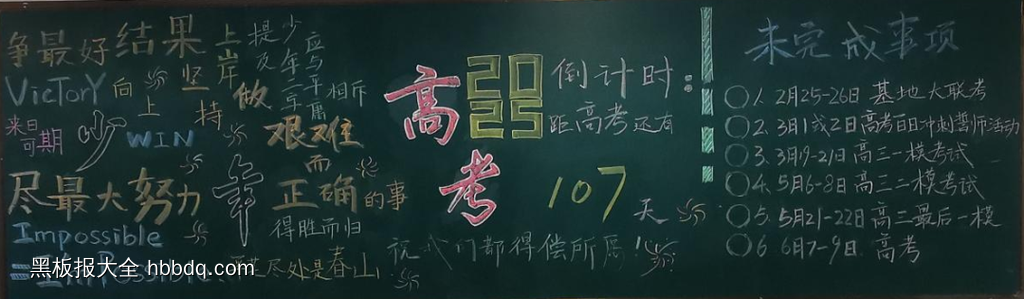 争最好结果
VicTorY
向上
坚持
上岸
来日可期
少年
WIN
尽最大努力
Impossible
提及少年一字
应与平庸相斥
做
艰难
而
正确的事
得胜而归
尽处是春山
黑板报大全 hbbdq.com
高考
2025
倒计时:
距高考还有
107
天
祝我们都得偿所愿!
未完成事项
1. 2月25-26日 基地大联考
2. 3月1或2日高考百日冲刺誓师活动
3. 3月19-21日 高三一模考试
4. 5月6-8日 高三二模考试
5. 5月21-22日 高三最后一模
6 6月7-9日 高考